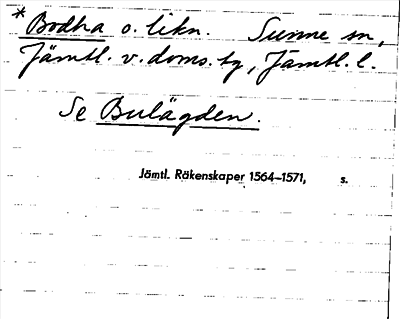 * Bodha o. likn. Sunne sn,
Jämtl. v. doms. tg, Jämtl. l.
Se Bulägden.
Jämtl. Räkenskaper 1564–1571, s.